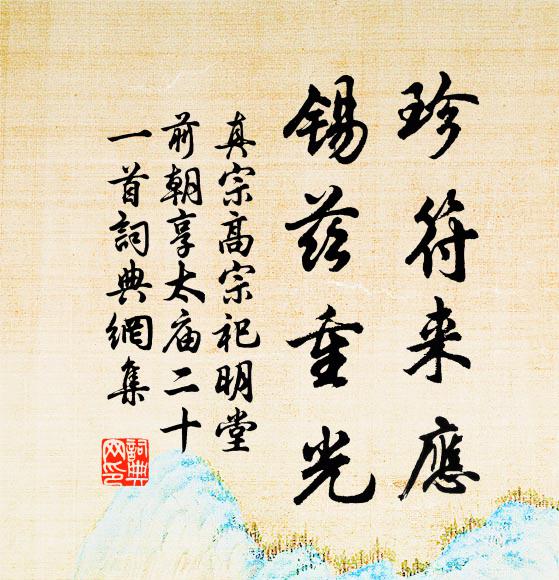 珍符来應
锡兹重光
真宗高宗祀明堂
前朝享太庙二十
一首詞典網集
詞典網印